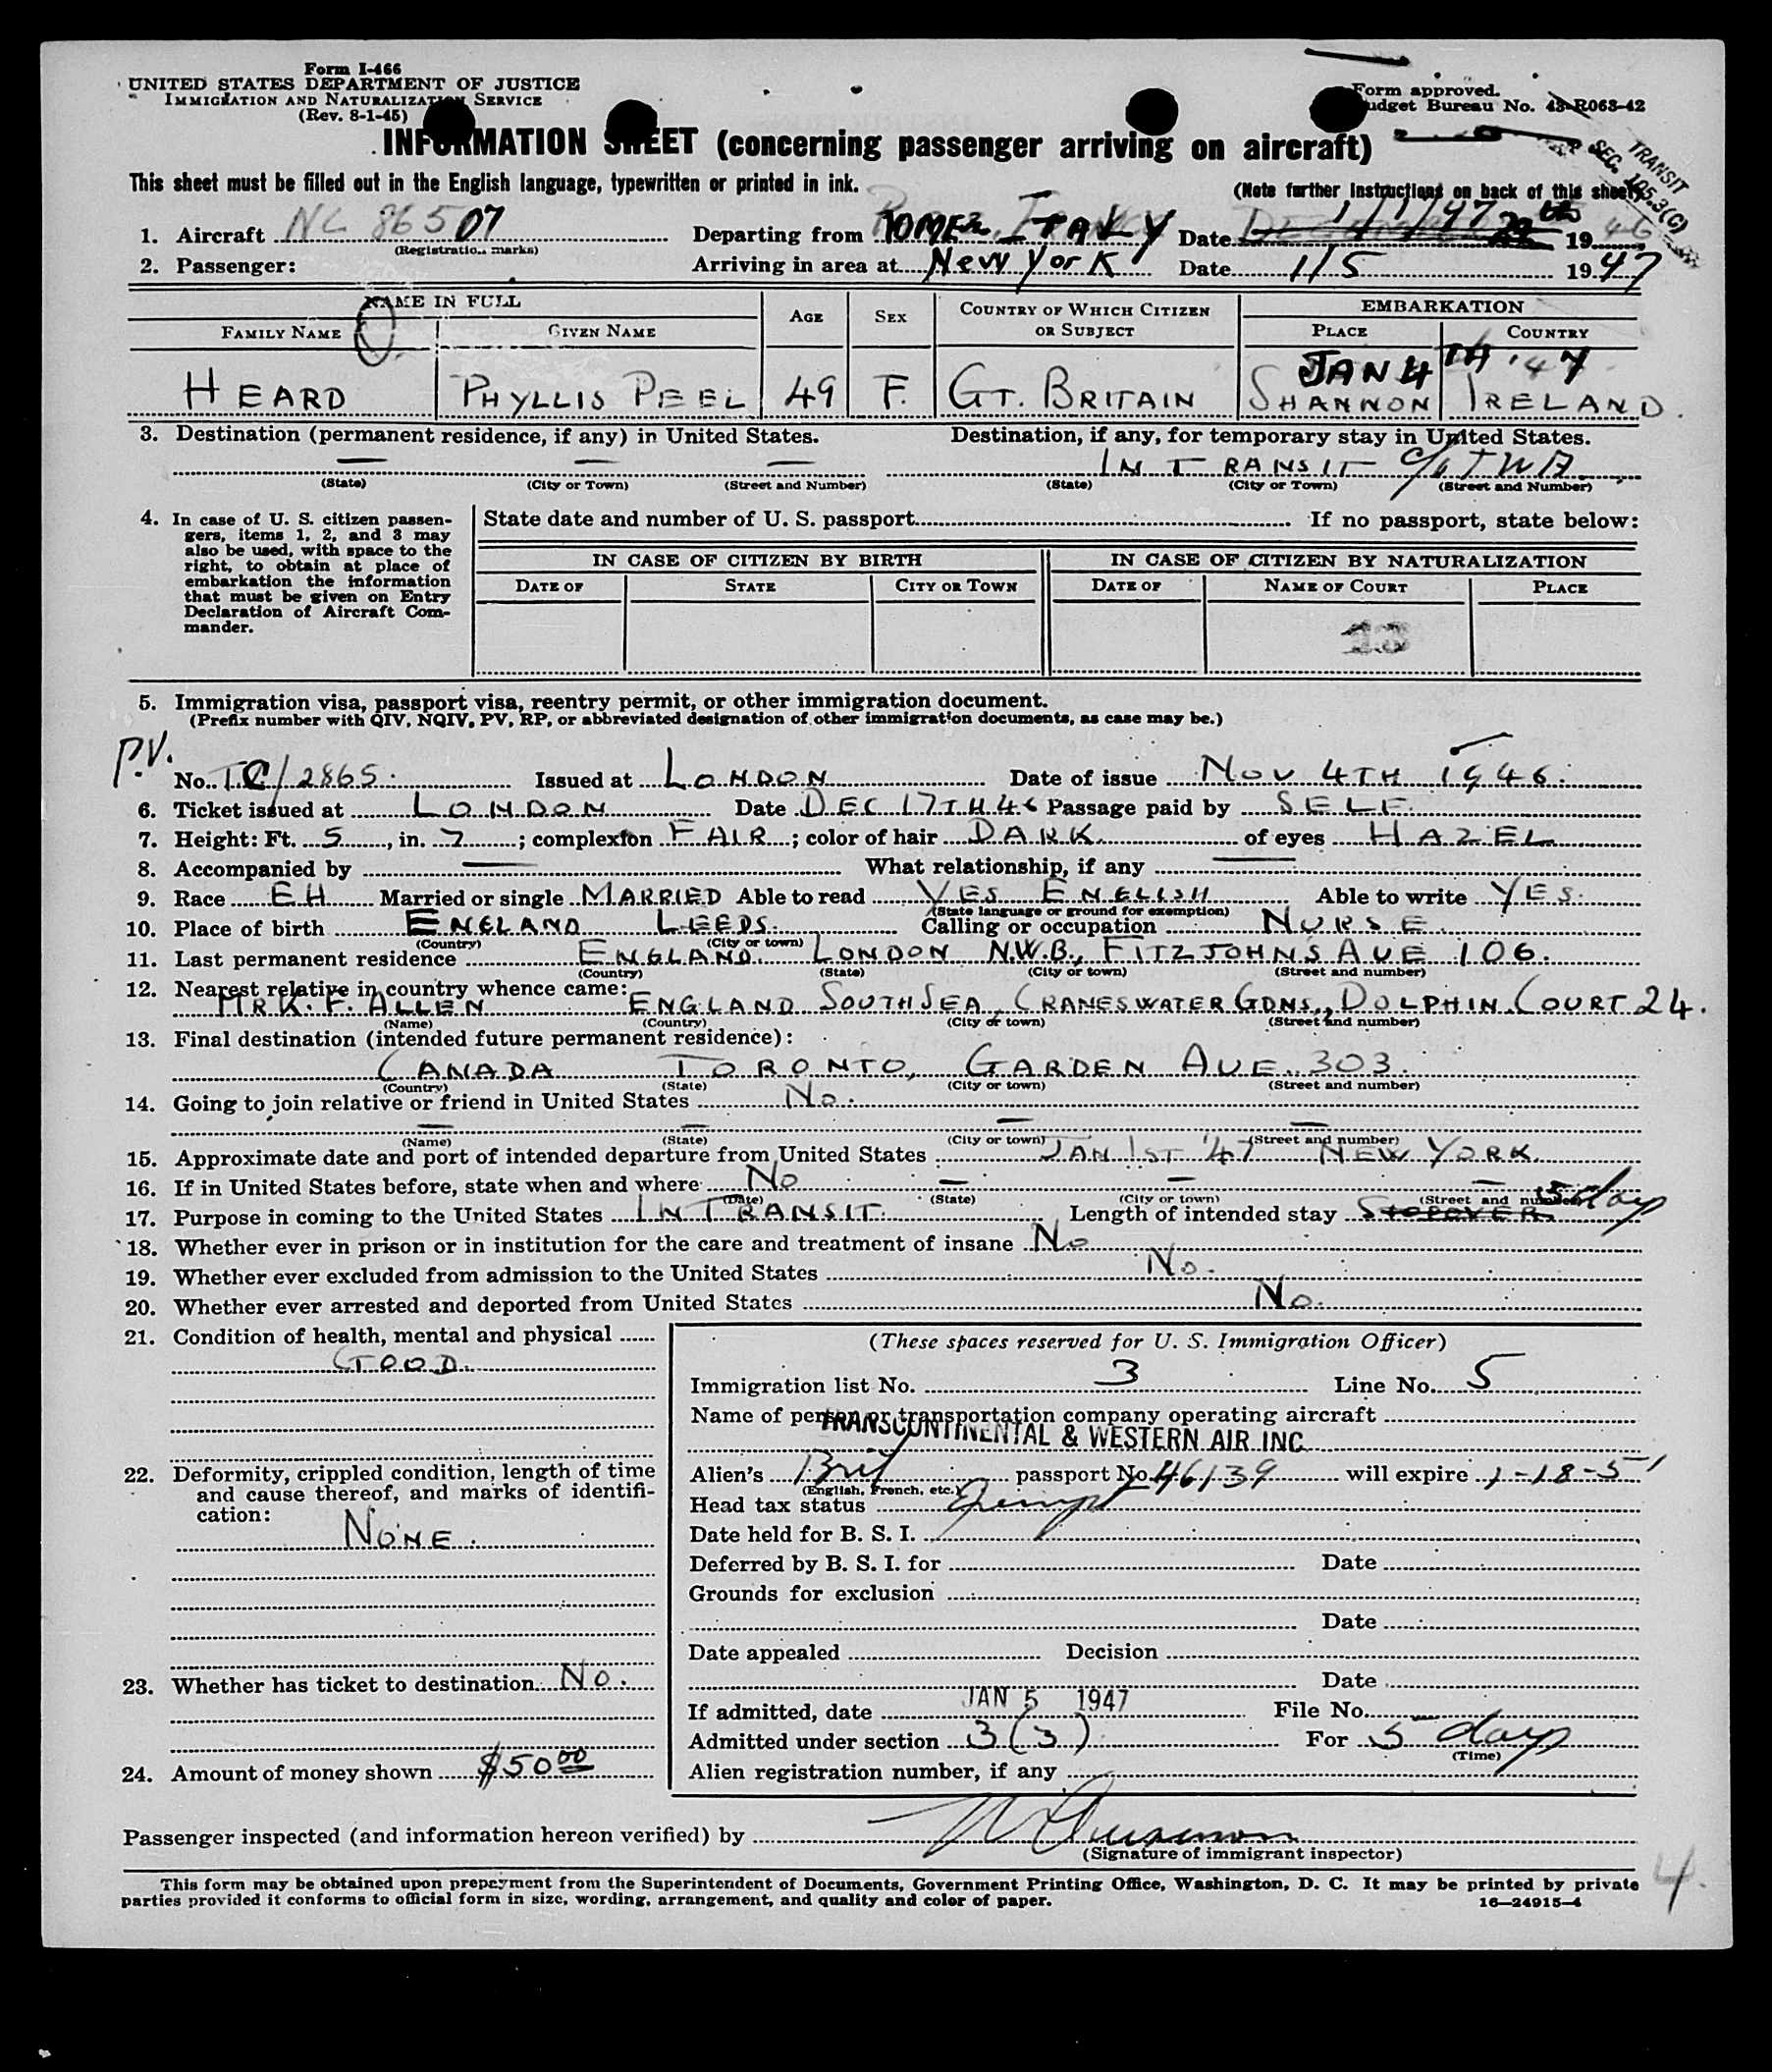 Form I-466
UNITED STATES DEPARTMENT OF JUSTICE
IMMIGRATION AND NATURALIZATION SERVICE
(Rev. 8-1-45)
Form approved.
Budget Bureau No. 43-R063-42
INFORMATION SHEET (concerning passenger arriving on aircraft)
TRANSIT
SEC. 105.3(C)
This sheet must be filled out in the English language, typewritten or printed in ink.
(Note further instructions on back of this sheet)
1. Aircraft NC 86507 Departing from ROME, ITALY Date 1/1/47 1946
(Registration marks)
2. Passenger: Arriving in area at New York Date 1/5 1947
NAME IN FULL AGE SEX COUNTRY OF WHICH CITIZEN OR SUBJECT EMBARKATION
FAMILY NAME GIVEN NAME PLACE COUNTRY
JAN 4TH '47
HEARD PHYLLIS PEEL 49 F. GT. BRITAIN SHANNON IRELAND.
3. Destination (permanent residence, if any) in United States. Destination, if any, for temporary stay in United States.
— — — IN TRANSIT c/o TWA.
(State) (City or Town) (Street and Number) (State) (City or Town) (Street and Number)
4. In case of U. S. citizen passengers, items 1, 2, and 3 may also be used, with space to the right, to obtain at place of embarkation the information that must be given on Entry Declaration of Aircraft Commander.
State date and number of U. S. passport If no passport, state below:
IN CASE OF CITIZEN BY BIRTH IN CASE OF CITIZEN BY NATURALIZATION
DATE OF STATE CITY OR TOWN DATE OF NAME OF COURT PLACE
5. Immigration visa, passport visa, reentry permit, or other immigration document.
(Prefix number with QIV, NQIV, PV, RP, or abbreviated designation of other immigration documents, as case may be.)
P.V.
No. T.C/2865. Issued at LONDON Date of issue NOV 4TH 1946.
6. Ticket issued at LONDON Date DEC 17TH 46 Passage paid by SELF.
7. Height: Ft. 5, in. 7; complexion FAIR; color of hair DARK. of eyes HAZEL
8. Accompanied by — What relationship, if any —
9. Race EH Married or single MARRIED Able to read YES ENGLISH Able to write YES.
(State language or ground for exemption)
10. Place of birth ENGLAND LEEDS. Calling or occupation NURSE.
(Country) (City or town)
11. Last permanent residence ENGLAND. LONDON N.W.3., FITZJOHNS AVE 106.
(Country) (State) (City or town) (Street and number)
12. Nearest relative in country whence came:
MR K. F. ALLEN ENGLAND SOUTHSEA, CRANESWATER GDNS., DOLPHIN COURT 24.
(Name) (Country) (City or town) (Street and number)
13. Final destination (intended future permanent residence):
CANADA TORONTO, GARDEN AVE. 303.
(Country) (State) (City or town) (Street and number)
14. Going to join relative or friend in United States No.
— — — —
(Name) (State) (City or town) (Street and number)
15. Approximate date and port of intended departure from United States JAN 1ST '47 NEW YORK.
16. If in United States before, state when and where No — — —
(Date) (State) (City or town) (Street and number)
17. Purpose in coming to the United States IN TRANSIT. Length of intended stay STOPOVER. 5 days
18. Whether ever in prison or in institution for the care and treatment of insane No
19. Whether ever excluded from admission to the United States No.
20. Whether ever arrested and deported from United States No.
21. Condition of health, mental and physical
GOOD.
22. Deformity, crippled condition, length of time and cause thereof, and marks of identification:
NONE.
23. Whether has ticket to destination No.
24. Amount of money shown $50.00
(These spaces reserved for U. S. Immigration Officer)
Immigration list No. 3 Line No. 5
Name of person or transportation company operating aircraft
TRANSCONTINENTAL & WESTERN AIR INC
Alien's Brit passport No. 46139 will expire 1-18-51
(English, French, etc.)
Head tax status Exempt
Date held for B. S. I.
Deferred by B. S. I. for Date
Grounds for exclusion
Date
Date appealed Decision
Date
If admitted, date JAN 5 1947 File No.
Admitted under section 3(3) For 5 days
(Time)
Alien registration number, if any
Passenger inspected (and information hereon verified) by
(Signature of immigrant inspector)
4
This form may be obtained upon prepayment from the Superintendent of Documents, Government Printing Office, Washington, D. C. It may be printed by private
parties provided it conforms to official form in size, wording, arrangement, and quality and color of paper. 16—24915-4